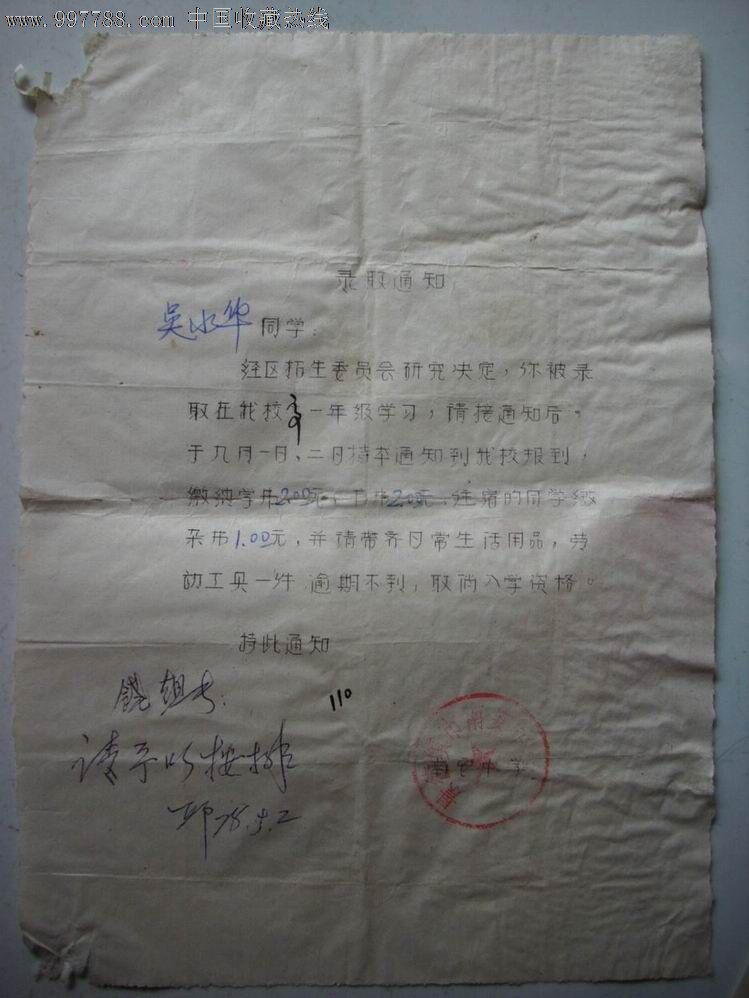 www.997788.com 中国收藏热线
录取通知
吴水华同学：
经区招生委员会研究决定，你被录
取在我校高一年级学习，请接通知后。
于九月一日、二日持本通知到我校报到，
缴纳学币2.00元，书币2.00元，住宿的同学缴
杂币1.00元，并请带齐日常生活用品，劳
动工具一件 逾期不到，取消入学资格。
持此通知
110
请予以按排
中学
78.9.2